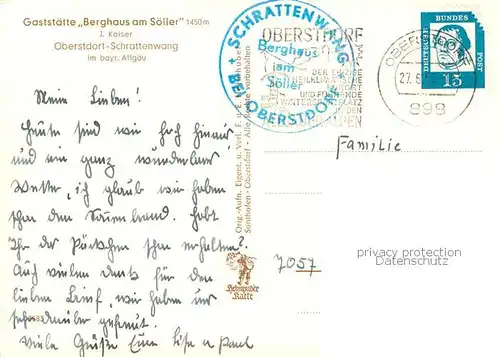 Gaststätte „Berghaus am Söller" 1450 m
J. Kaiser
Oberstdorf-Schrattenwang
im bayr. Allgäu
Meine Lieben!
Heute sind wir hoch hinauf
und ein ganz wunderbares
Wetter, ich glaub wir haben
schon den Sonnenbrand. habt
Ihr das Päckchen schon erhalten?
Auch vielen dank für den
lieben Brief, wir haben uns
gefreut.
Viele Grüße Eure Lisa u Paul
Orig.-Aufn. Eigent. u. Verl.
Sonthofen - Oberstdorf - Alle Rechte vorbehalten
SCHRATTENWANG
Berghaus
am
Söller
BEI OBERSTDORF
OBERSTDORF
DER EINZIGE
HEILKLIMATISCHE
KURORT
UND FÜHRENDE
WINTERSPORTPLATZ
IN DEN
ALPEN
OBERSTDORF
27.
898
DEUTSCHE BUNDESPOST
15
Familie
7057
privacy protection
Datenschutz